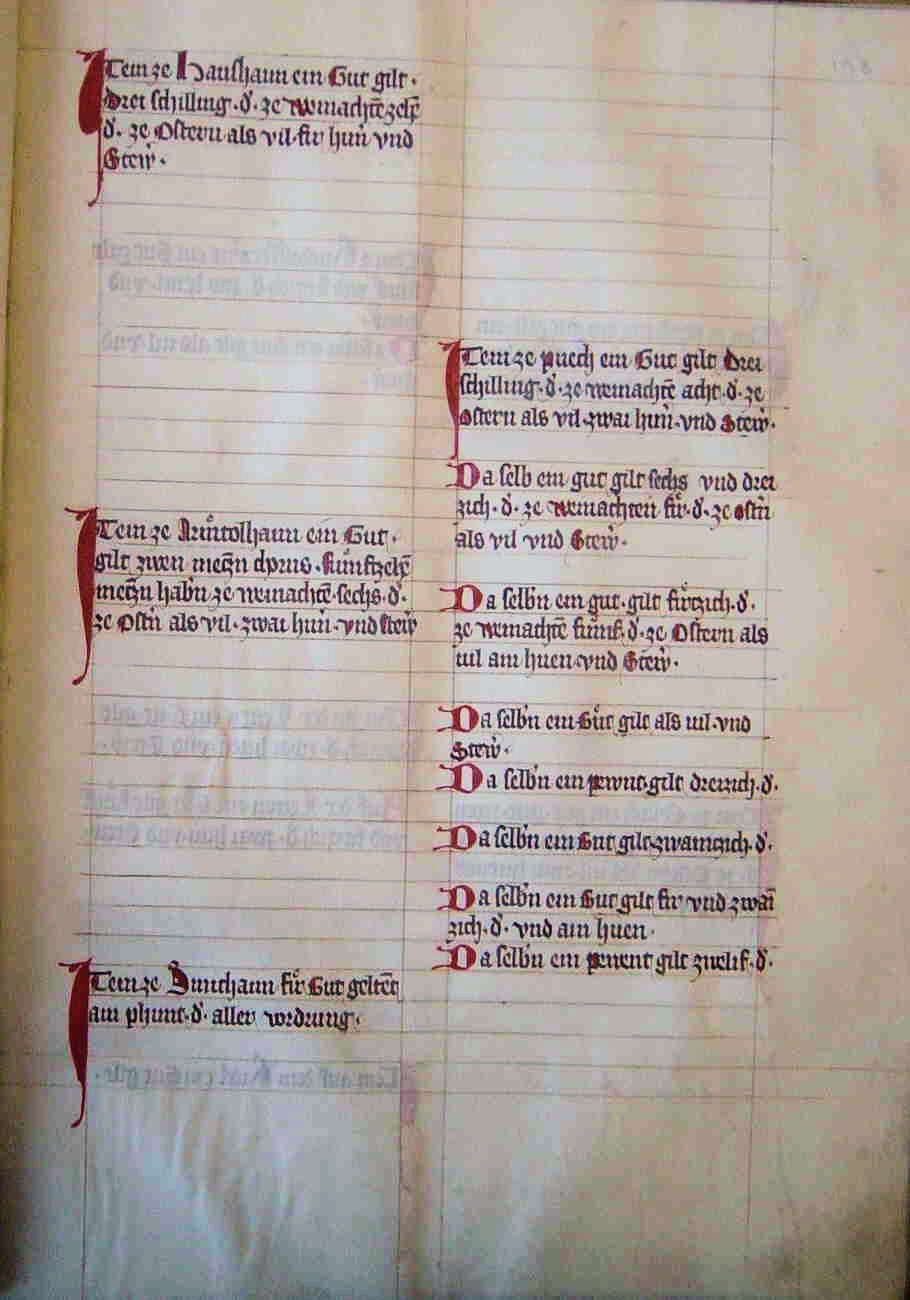 Item ze Haushaim ein Gut gilt ·
drei schilling · d · ze weinachtē zelf
d · ze Ostern als vil · fir hun̄ vnd
Stew̄ ·
Item ze ein Gut ·
gilt zwen meczn · funfzeh̄
meczn habn̄ ze weinachtē · sechs · d ·
ze Ostn̄ als vil · zwai hun̄ · vnd stew̄
Item ze fir Gut geltēt
ain phunt · d · aller vordrung ·
Item ze puech ein Gut gilt drei
schilling · d · ze weinachtē acht · d · ze
ostern als vil · zwai hun̄ · vnd Stew̄ ·
Da selb ein gut gilt sechs vnd drei
zich · d · ze weinachten fir · d · ze ostn̄
als vil vnd Stew̄ ·
Da selbn̄ ein gut · gilt firtzich · d ·
ze weinachtē funf · d · ze Ostern als
uil ain huen · vnd Stew̄ ·
Da selbn̄ ein Gut gilt als uil · vnd
Stew̄ ·
Da selbn̄ ein pewnt · gilt dreizich · d ·
Da selbn̄ ein Gut gilt zwainzich · d ·
Da selbn̄ ein Gut gilt fir vnd zwaī
zich · d · vnd ain huen ·
Da selbn̄ ein gilt zuelif · d ·